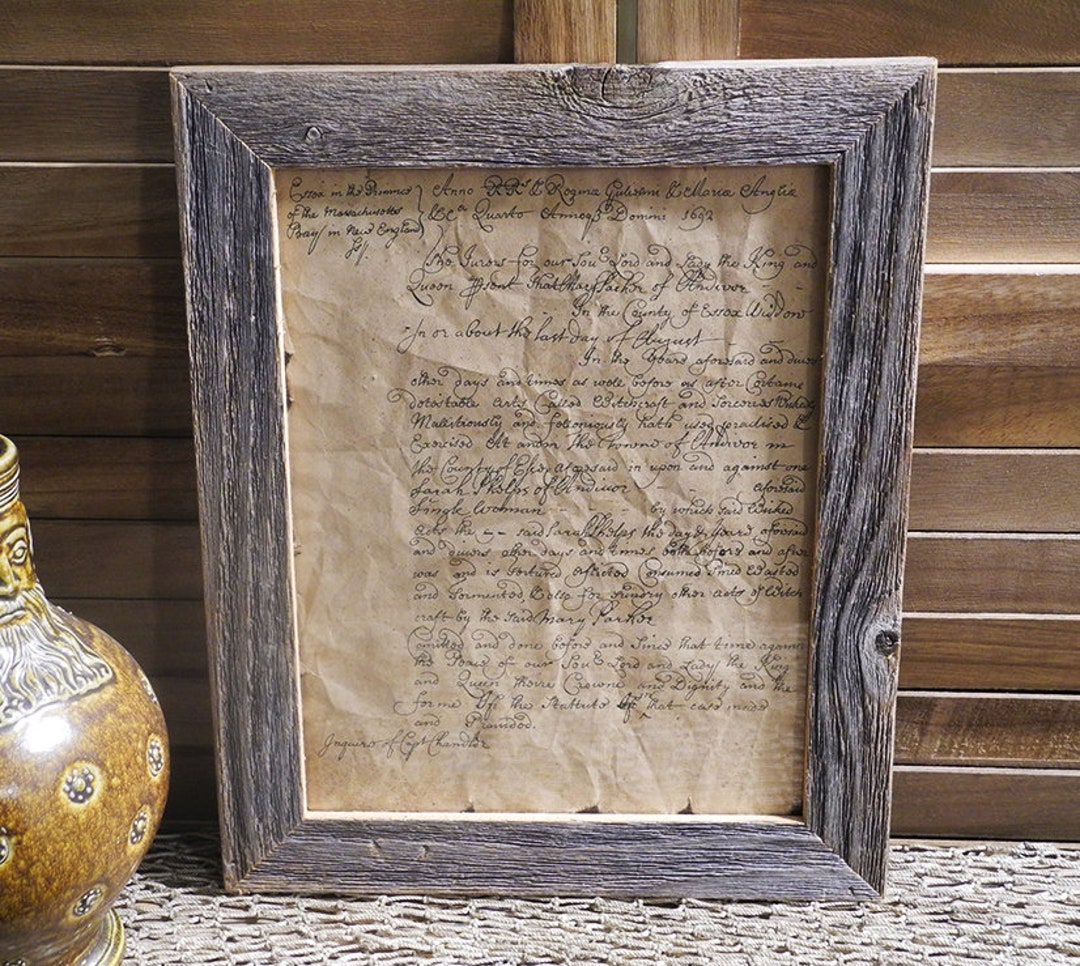 Essex in the Province
of the Massachusetts
Bay in New England
ss/.
Anno RRs & Reginæ Gulielmi & Mariæ Angliæ
&Ca Quarto Annoqe Domini 1692
The Jurors for our Soue Lord and Lady the King and
Queen psent That Mary Parker of Andivor - -
In the County of Essex Widdow
In or about the last day of August
In the Yeare aforesaid and divers
other days and times as well before as after Certaine
detestable Arts Called Witchcraft and Sorceries Wickedly
Malitiously and felloniously hath used practised &
Exercised At and in the Towne of Andivor in
the County of Essex aforesaid in upon and against one
Sarah Phelps of Andivor - - aforesaid
Single Woman - - - by which said Wicked
Acts the -- said Sarah Phelps the day & Yeare aforesaid
and divers other days and times both before and after
was and is Tortured Aflicted Consumed Pined Wasted
and Tormented, & also for sundry other Acts of Witch
craft by the said Mary Parker
Comitted and done before and Since that time against
the Peace of our Soue Lord and Lady the King
and Queen theire Crowne and Dignity and the
forme Of the Stattute In that case made
and Provided.
Inquire of Capt Chandler